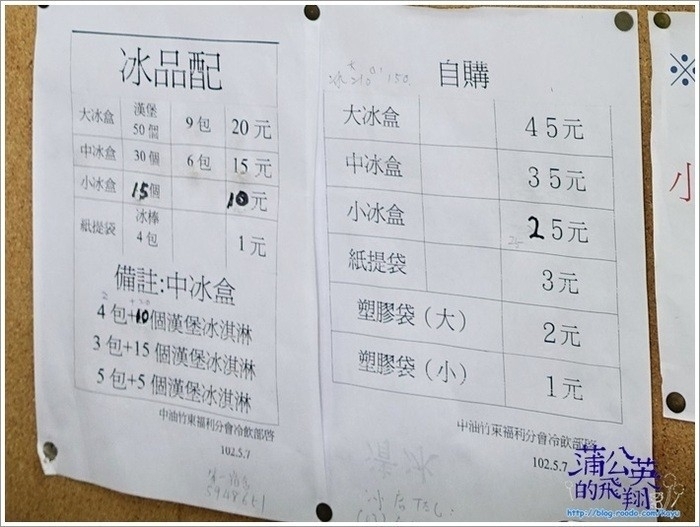 冰品配
大冰盒 漢堡50個 9包 20元
中冰盒 30個 6包 15元
小冰盒 15個 10元
紙提袋 冰棒4包 1元
備註:中冰盒
4包+10個漢堡冰淇淋
3包+15個漢堡冰淇淋
5包+5個漢堡冰淇淋
中油竹東福利分會冷飲部啓
102.5.7
自購
大冰盒 45元
中冰盒 35元
小冰盒 25元
紙提袋 3元
塑膠袋(大) 2元
塑膠袋(小) 1元
中油竹東福利分會冷飲部啓
102.5.7
※
小
蒲公英
的飛翔
http://blog.roodo.com/Kayu